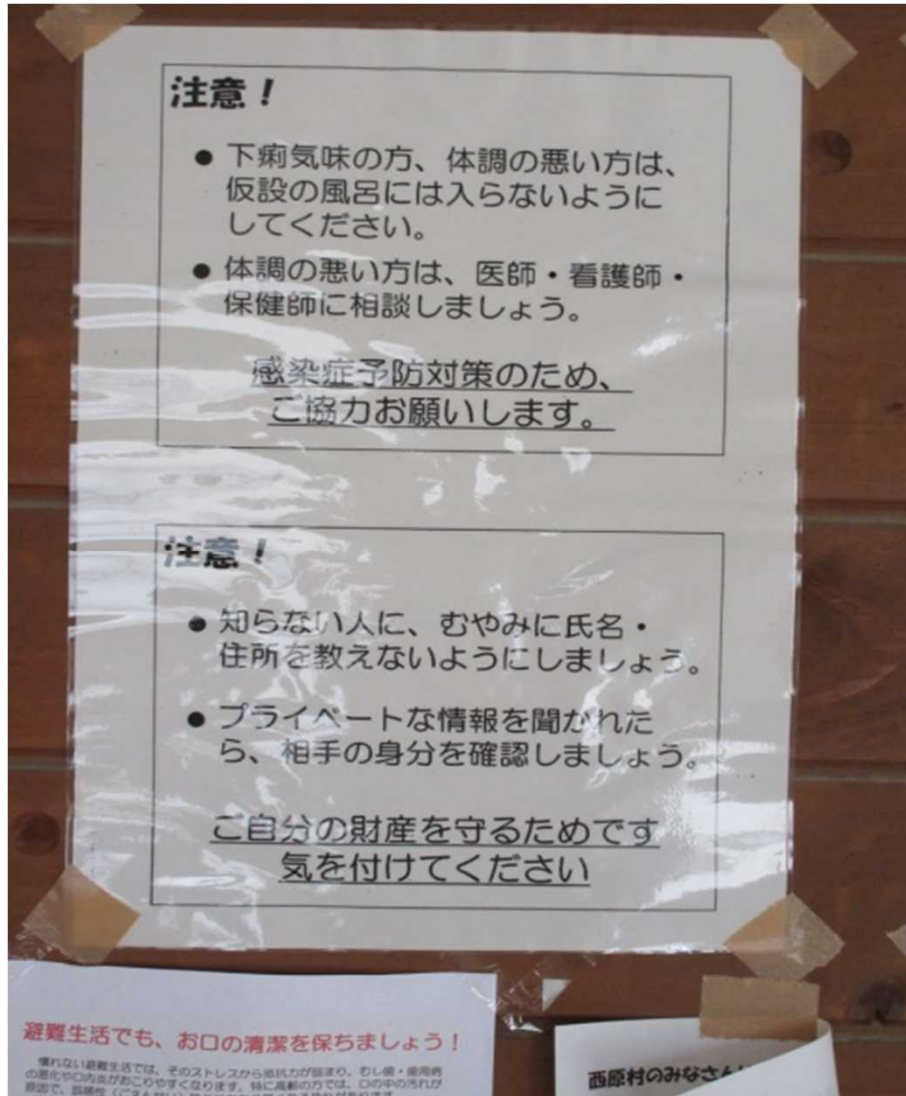 注意！
● 下痢気味の方、体調の悪い方は、
仮設の風呂には入らないように
してください。
● 体調の悪い方は、医師・看護師・
保健師に相談しましょう。
感染症予防対策のため、
ご協力お願いします。
注意！
● 知らない人に、むやみに氏名・
住所を教えないようにしましょう。
● プライベートな情報を聞かれた
ら、相手の身分を確認しましょう。
ご自分の財産を守るためです
気を付けてください
避難生活でも、お口の清潔を保ちましょう！
慣れない避難生活では、そのストレスから抵抗力が弱まり、むし歯・歯周病
の悪化や口内炎がおこりやすくなります。特に高齢の方では、口の中の汚れが
原因で、誤嚥性
西原村のみなさん